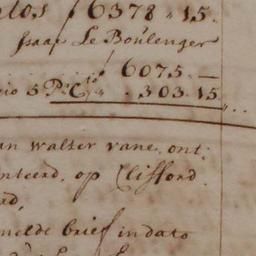 los, ƒ 6378 „ 15.
Isaac Le Boulenger
ƒ 6075. —
io 5 P. Cto „ . 303. 15
an walter vane, ont:
nteerd. op Clifford.
rd,
melde brief in dato